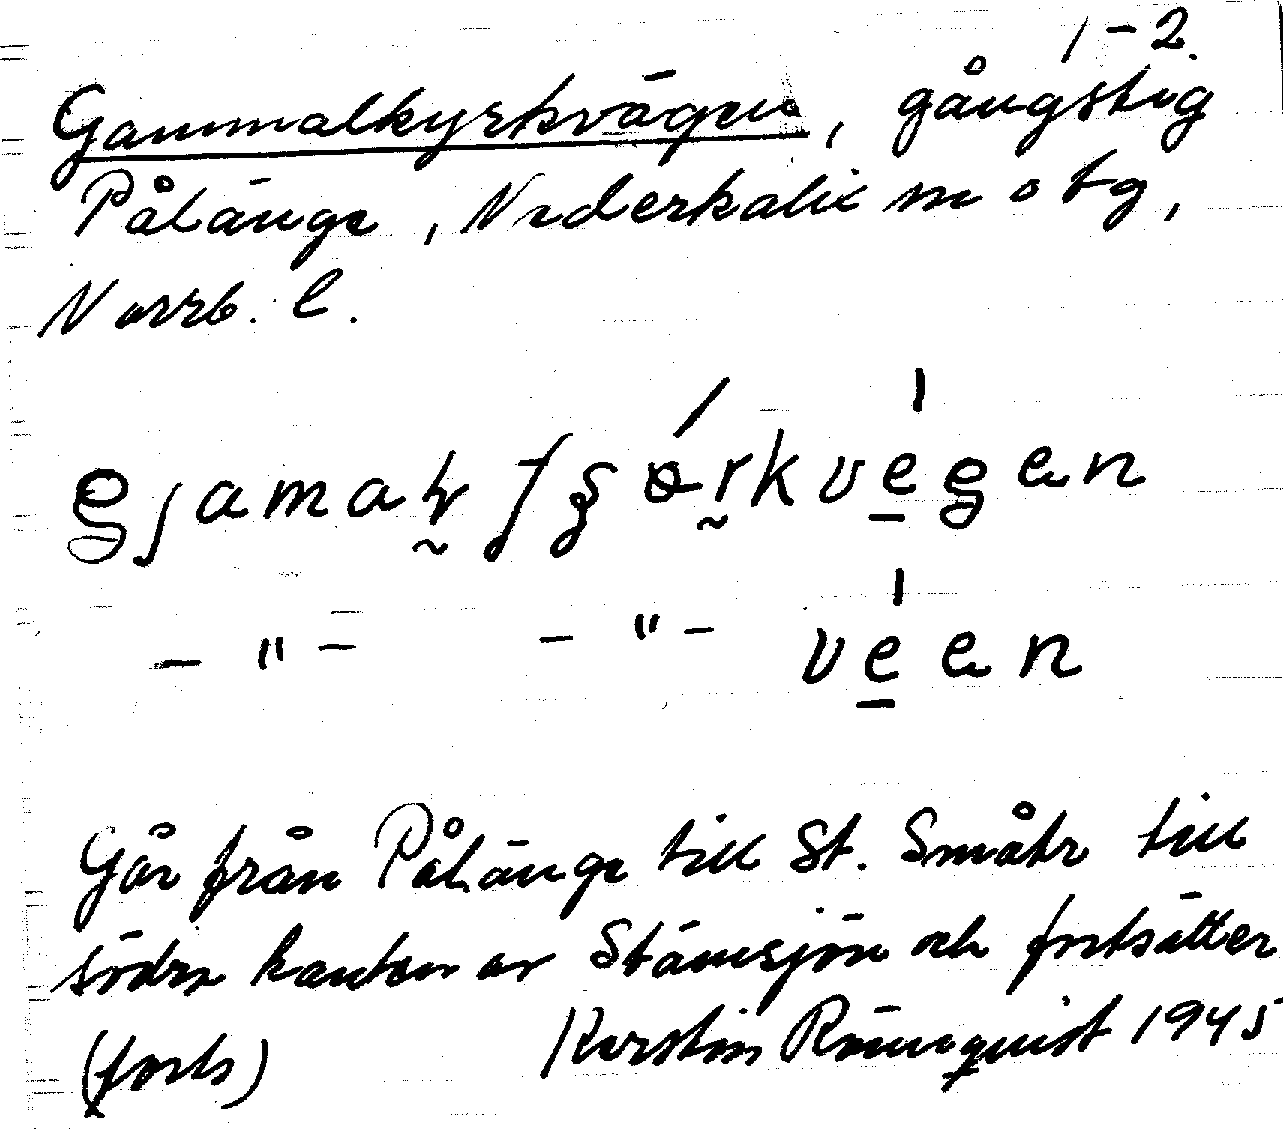 1-2.
Gammalkyrkvägen, gångstig
Pålänge, Nederkalix sn o tg,
Norrb. l.
-"- -"- veen
Går från Pålänge till St. Småtr till
södra kanten av Stämsjön och fortsätter
(forts) Kerstin Rönnquist 1945